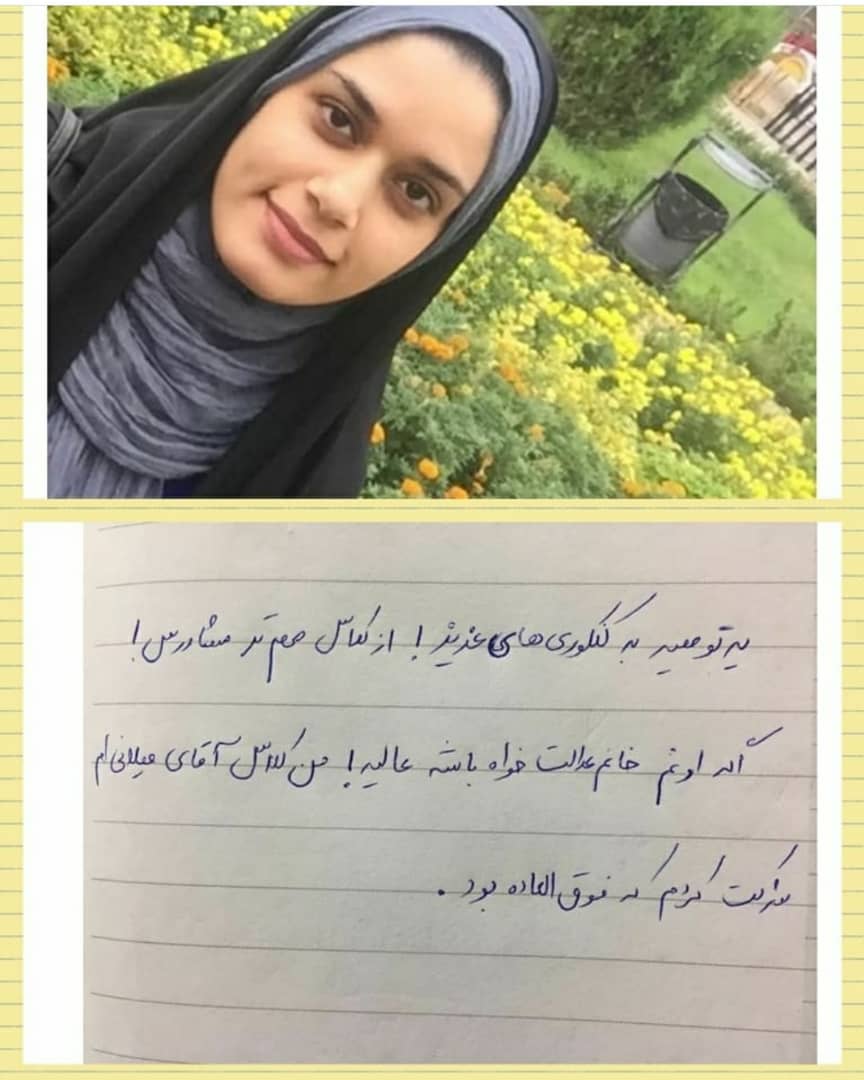 یه توصیه به کنکوری های عزیز! از کلاس مهم تر مشاورس!
اگه اونم خانم عدالت خواه باشه عالیه! من کلاس آقای میلانی ام
شرکت کردم که فوق العاده بود.